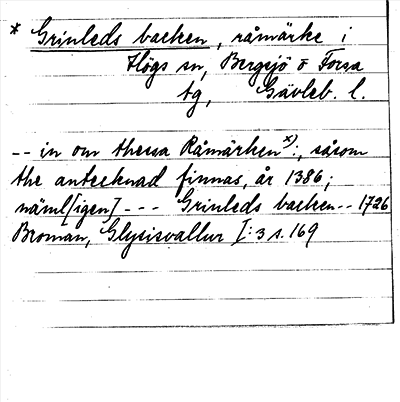 * Grinleds backen, råmärke i
Högs sn, Bergsjö o Forsa
tg, Gävleb. l.
-- in om thessa Råmärken x):, såsom
the antecknad finnas, år 1386;
näml[igen] --- Grinleds backen -- 1726
Broman, Glysisvallur I:3 s. 169